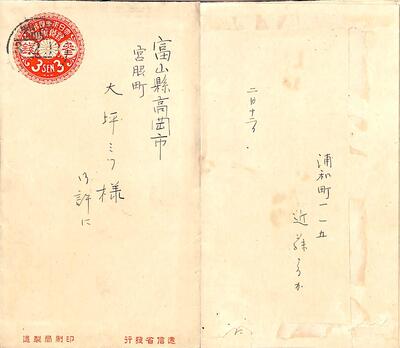 3 SEN 3
富山縣高岡市
宮服町
大坪ミツ様
御許に
遞信省發行
印刷局製造
二月十二日
浦和町一一五
近藤